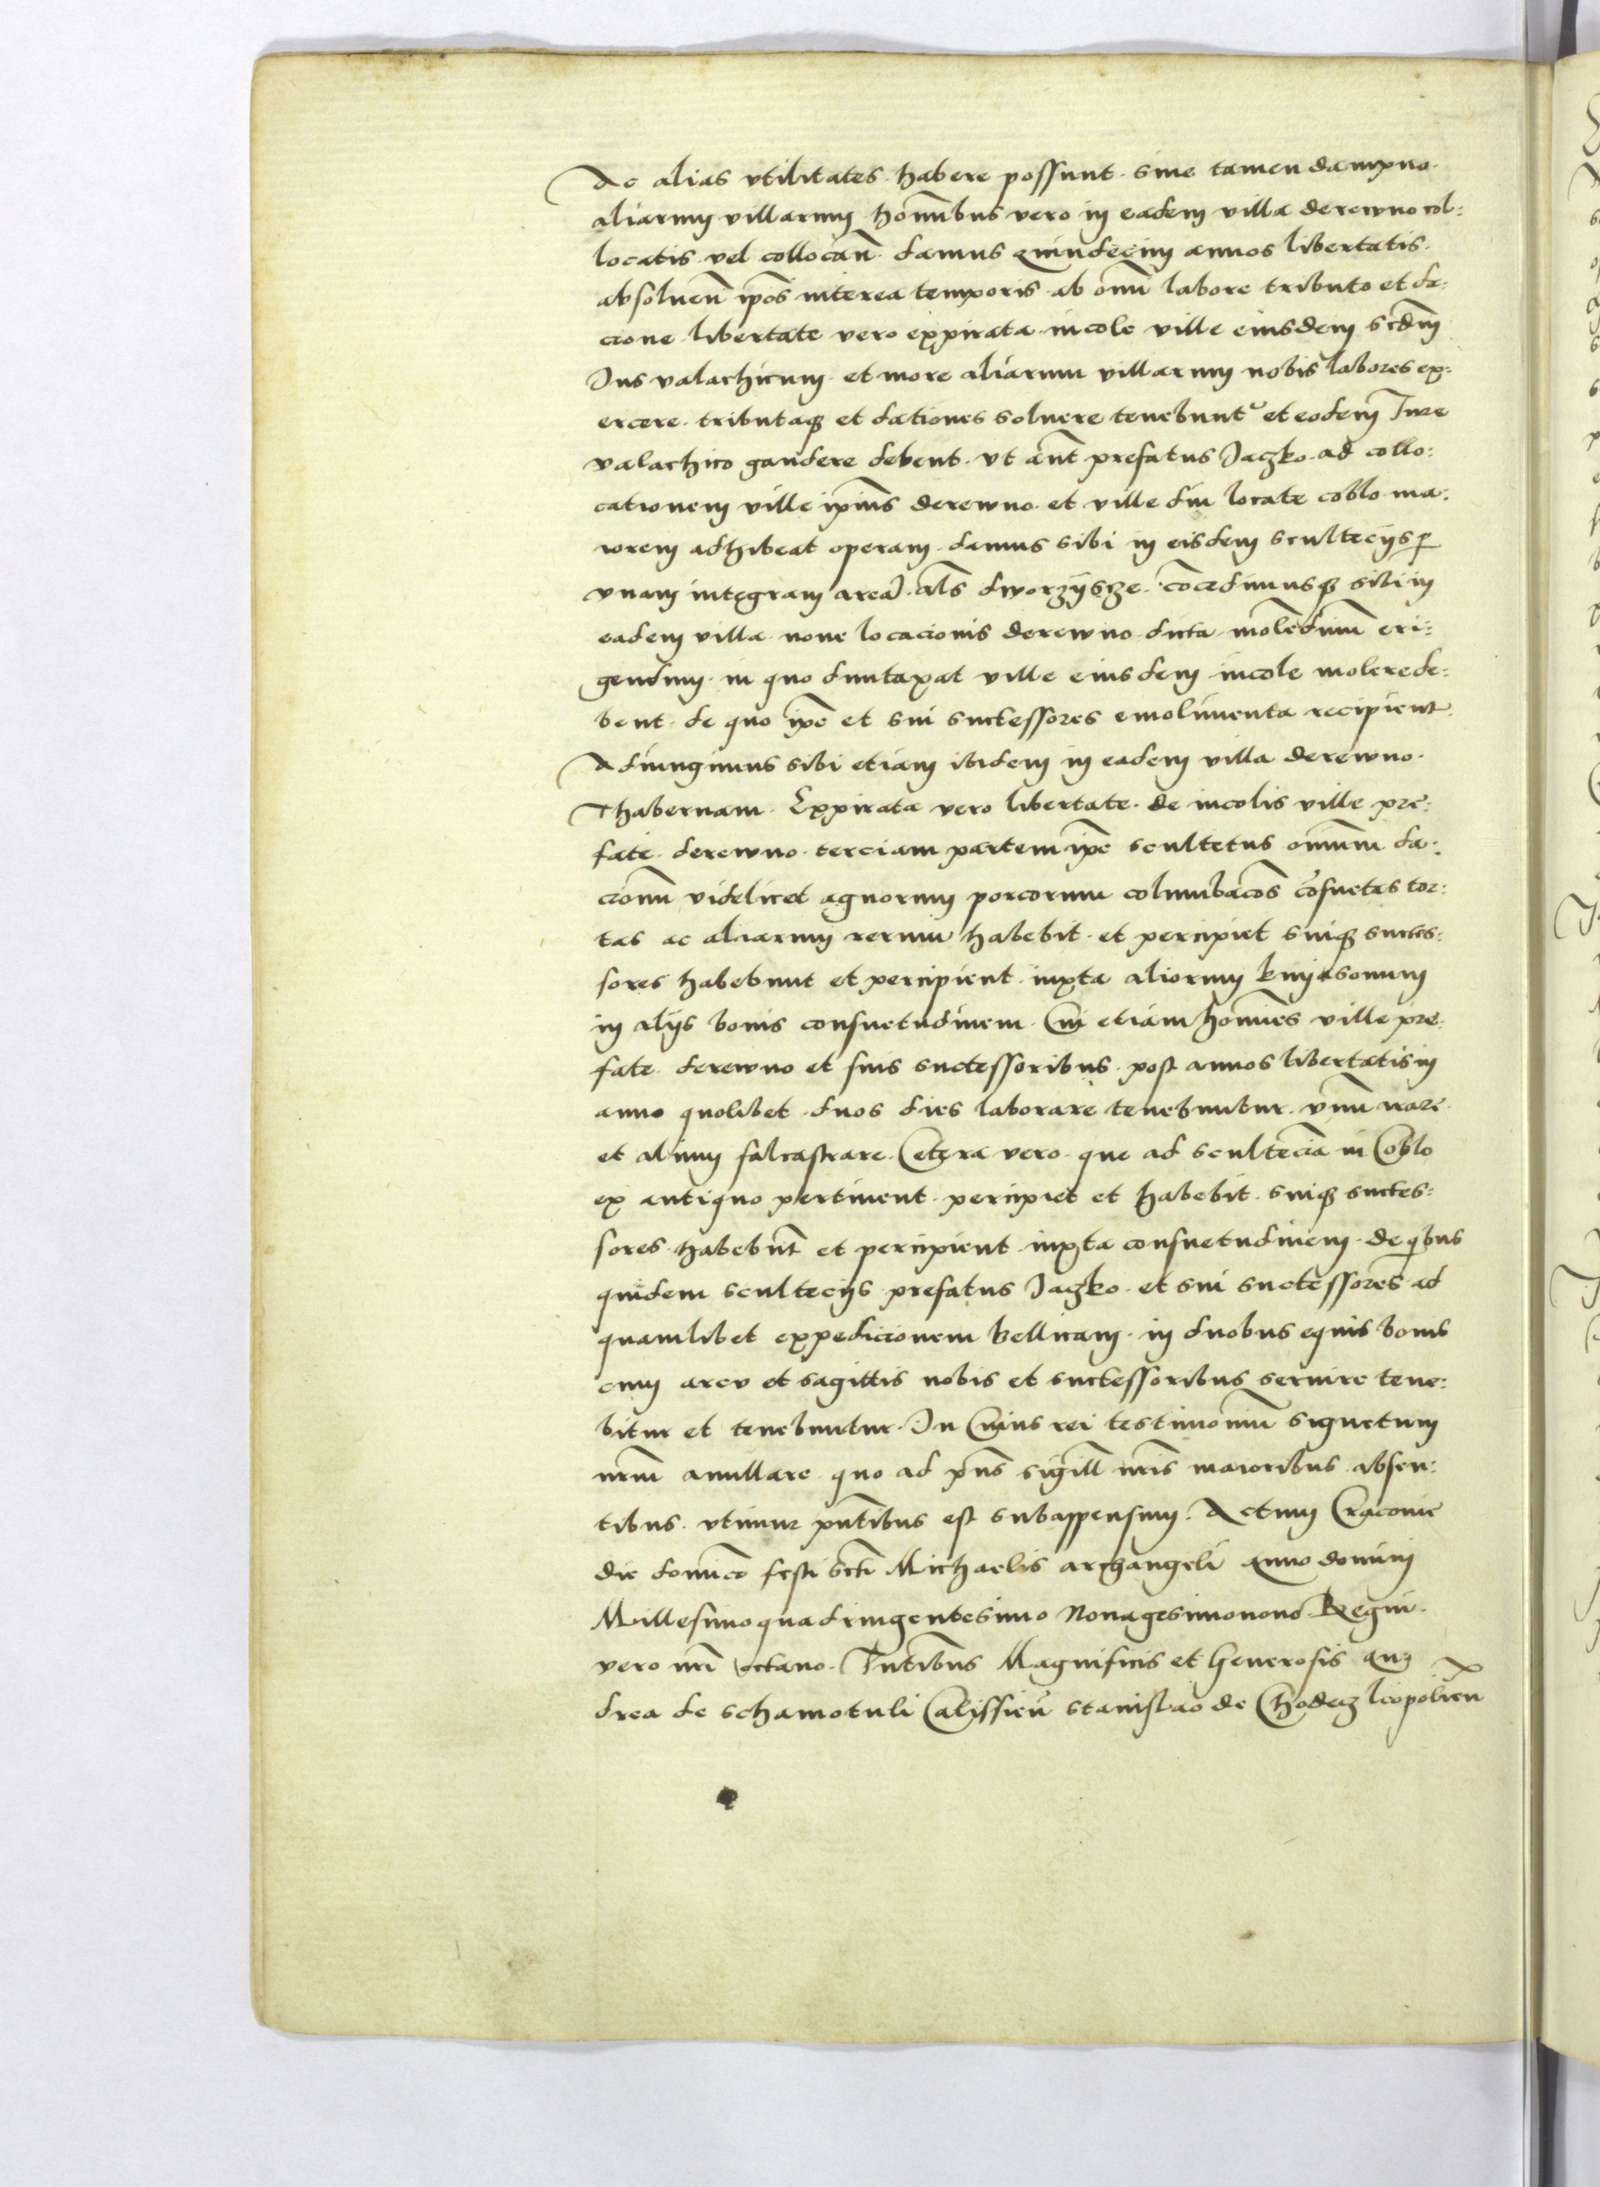 Ac alias vtilitates habere possunt sine tamen dampno
aliarum villarum hominibus vero in eadem villa derewno col:
locatis vel collocan̄ damus quindecim annos libertatis
absoluen̄ ip̄os interea temporis ab om̄i labore tributo et da:
cione libertate vero expirata incole ville eiusdem scd̄m
Ius valachicum et more aliarum villarum nobis labores ex:
ercere tributaq̨ et dationes soluere tenebunt᷑ et eodem Iure
valachico gaudere debent vt aūt prefatus Jaczko ad collo:
cationem ville ip̄ius derewno et ville diu locate coblo ma:
iorem adhibeat operam damus sibi in eisdem sculteciis ꝑ
vnam integram areā al̄s dworzyscze concedimusq̨ sibi in
eadem villa noue locacionis derewno dicta molēdinū eri:
gendum in quo duntaxat ville eiusdem incole molere de:
bent de quo ip̄e et sui successores emolimenta recipient
Adiungimus sibi etiam ibidem in eadem villa derewno
Thabernam Expirata vero libertate de incolis ville pre:
fate derewno terciam partem ip̄e scultetus oīnium da:
cionū videlicet agnorum porcorum columbacōs cōsuetas tor:
tas ac aliarum rerum habebit et percipiet suiq̨ succes:
sores habebunt et percipient iuxta aliorum knyasonum
in alijs bonis consuetudinem Cui etiam homines ville pre:
fate derewno et suis successoribus post annos libertatis in
anno quolibet duos dies laborare tenebuntur vnū arare
et alium falcastrare Cetera vero que ad sculteciā in Coblo
ex antiquo pertinent percipiet et habebit suiq̨ succes:
sores habebūt et percipient iuxta consuetudinem de qibus
quidem sculteciis prefatus Jaczko et sui successores ad
quamlibet expedicionem bellicam in duobus equis bonis
cum arcu et sagittis nobis et successoribus seruire tene:
bitur et tenebuntur In Cuius rei testimonium signetum
nr̄m annulare quo ad p̄ns sigill nr̄is maioribus absen:
tibus vtimur pn̄tibus est subappensum Actum Cracouie
die domīco festi sct̄i Michaelis archangeli Anno domini
Millesimoquadringentesimo Nonagesimonono Regni
vero nr̄i octauo Pn̄tibus Magnificis et Generosis An:
drea de schamotuli Calissien̄ stanislao de Chodecz leopolien̄